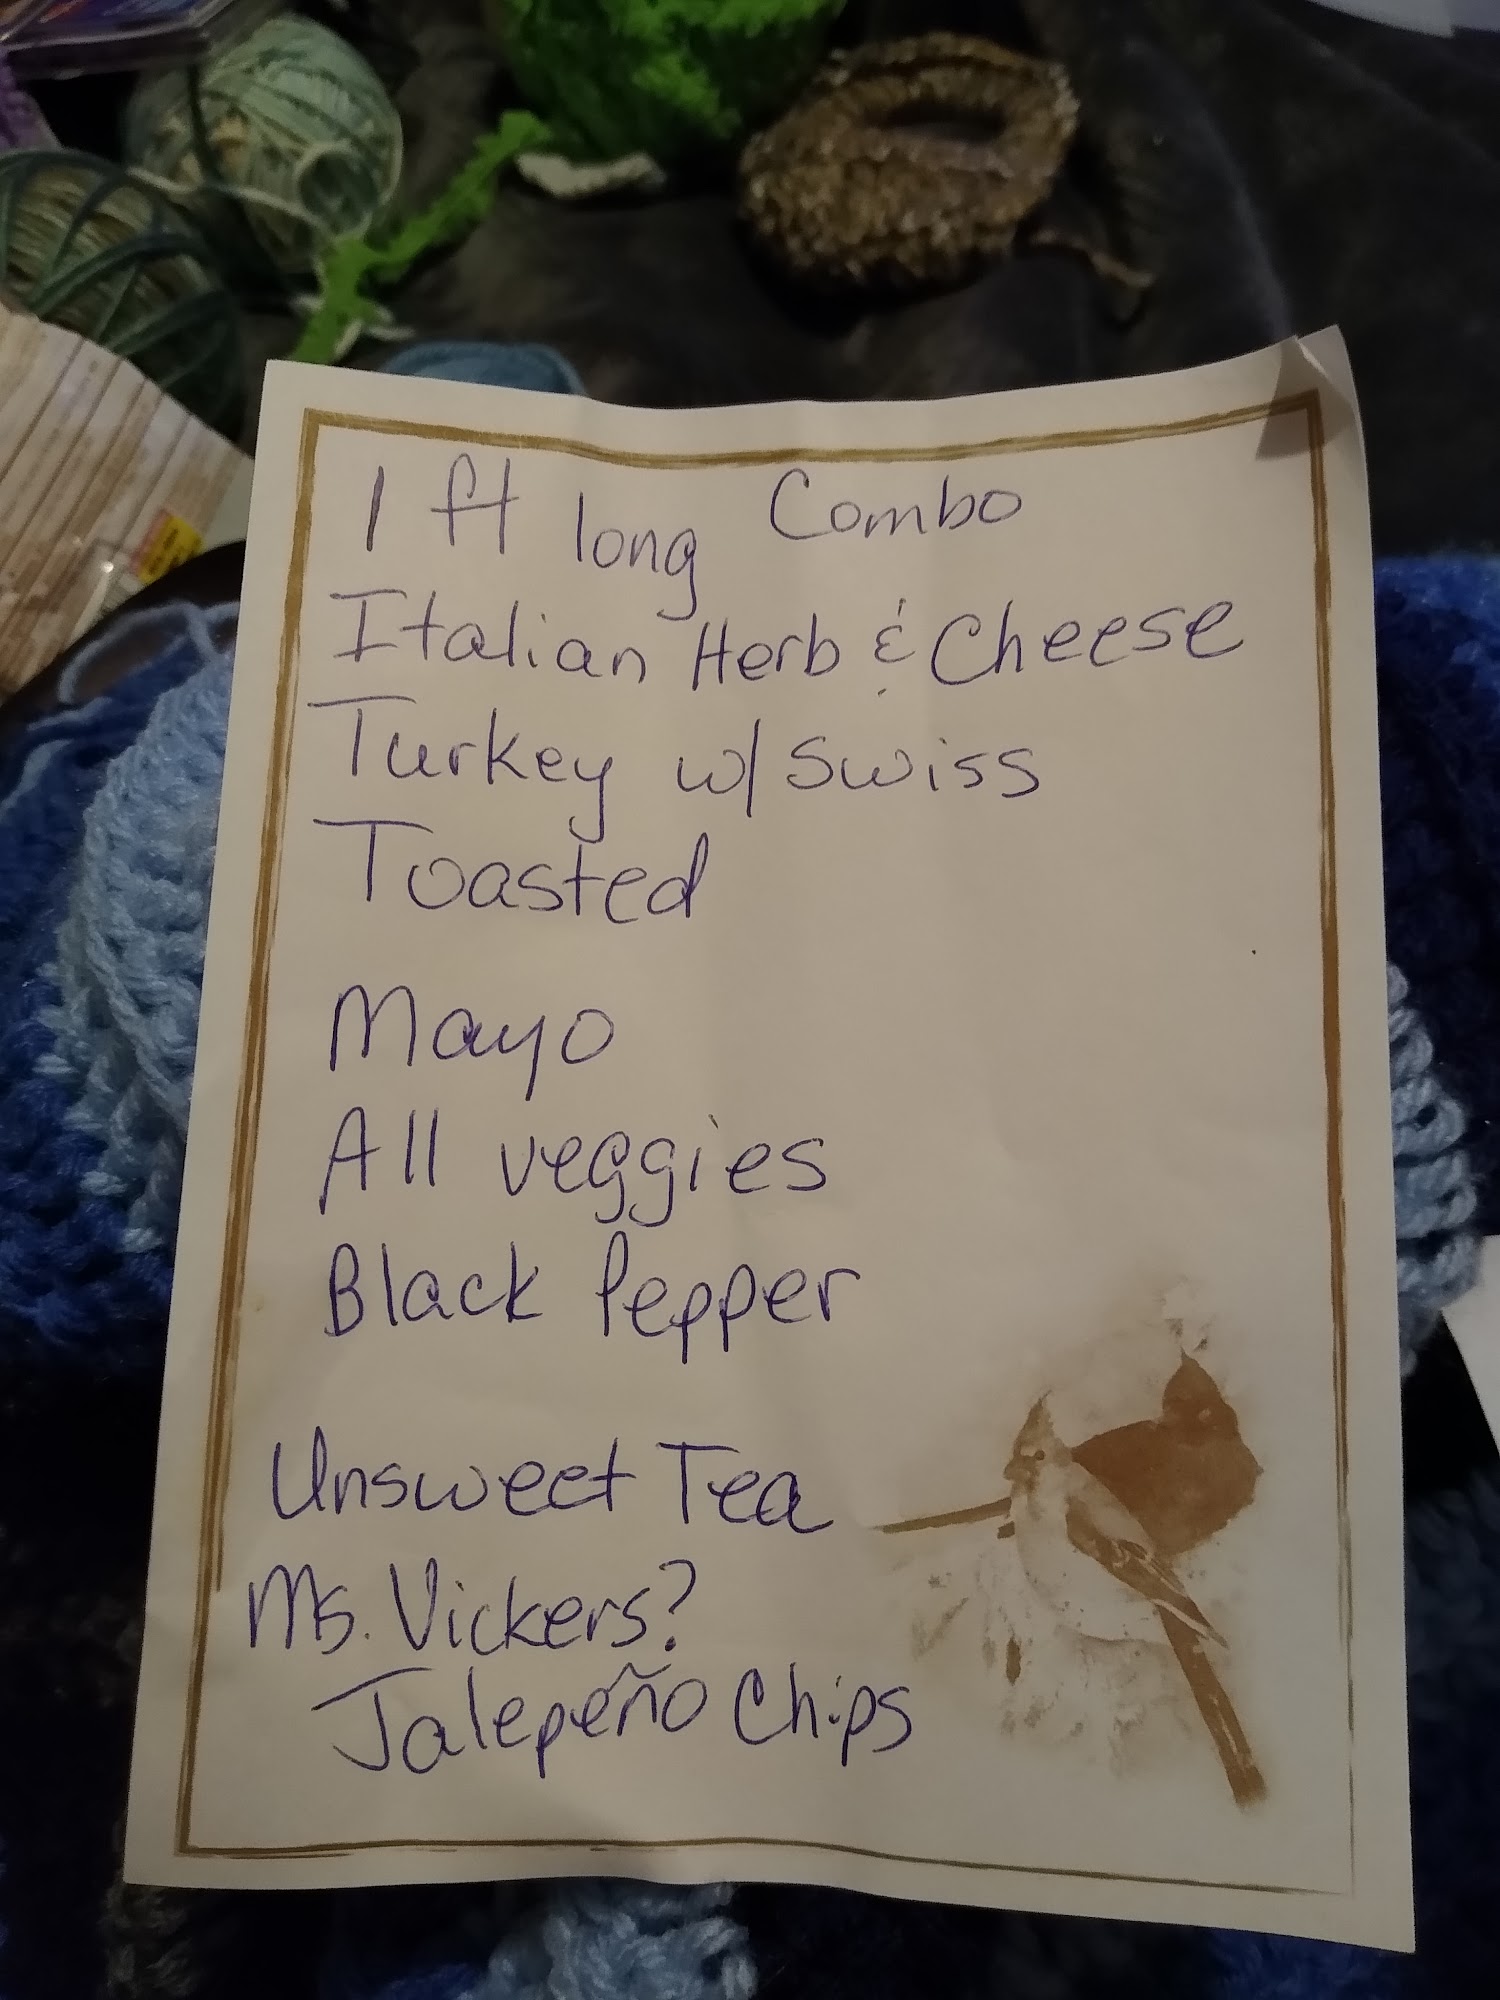 1 ft long Combo
Italian Herb & Cheese
Turkey w/ Swiss
Toasted
Mayo
All veggies
Black Pepper
Unsweet Tea
Ms. Vickers?
Jalepeño Chips